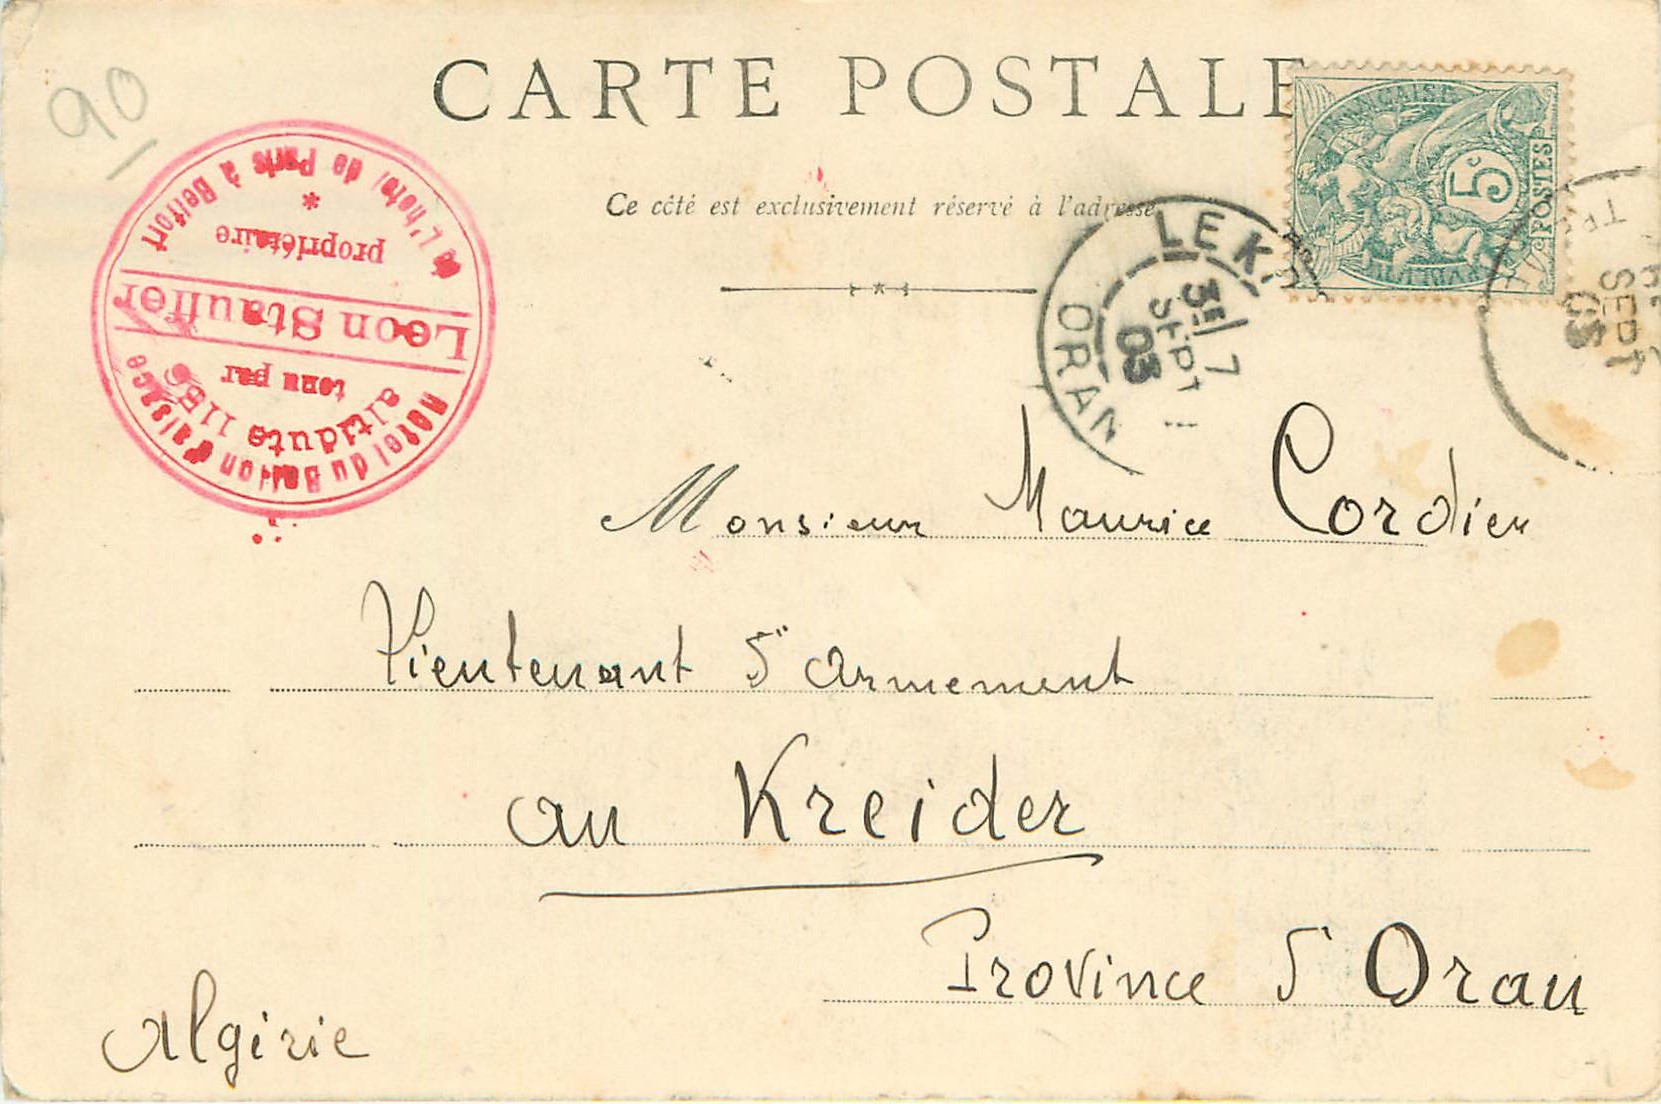 90
CARTE POSTALE
Ce côté est exclusivement réservé à l'adresse
FRANÇAISE
5c
POSTES
LE K
3E/7
SEPT
03
ORAN
SEPT
03
Hotel du Ballon d'alsace
altidute 1150
tenu par
Leon Stauffer
propriétaire
de L'hotel de Paris à Belfort
*
Monsieur Maurice Cordier
Lieutenant d'armement
au Kreider
Province d'Oran
Algérie